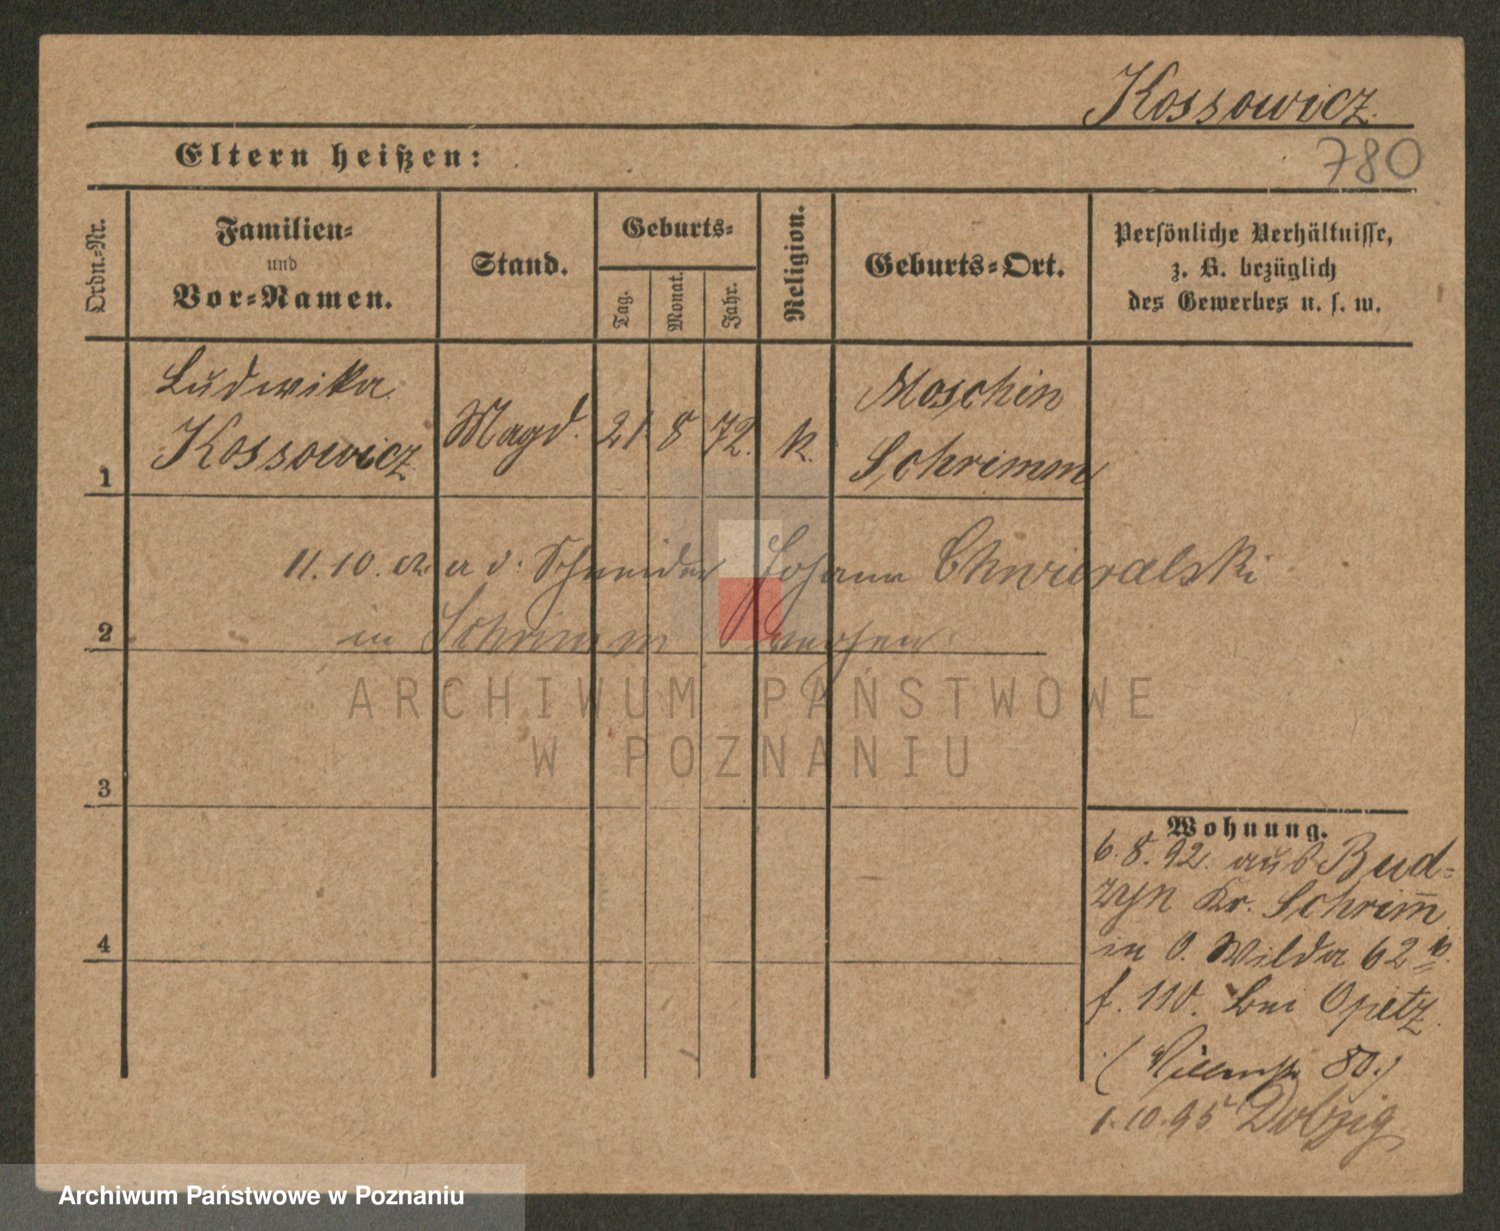 Kossowicz
780
Eltern heißen:
Ordn.-Nr.
Familien-
und
Vor-Namen.
Stand.
Geburts-
Tag.
Monat.
Jahr.
Religion.
Geburts-Ort.
Persönliche Verhältnisse,
z. B. bezüglich
des Gewerbes u. s. w.
1
Ludwika
Kossowicz
Magd.
21
8
72.
k.
Moschin
Schrimm
2
11.10. a d. Schneider Johann
in Schrimm
3
4
Wohnung.
6.8.92. aus Bud-
zyn Kr. Schrimm
in O. Wilda 62
f. 110. bei Opitz
80.)
1.10.95
ARCHIWUM PAŃSTWOWE
W POZNANIU
Archiwum Państwowe w Poznaniu